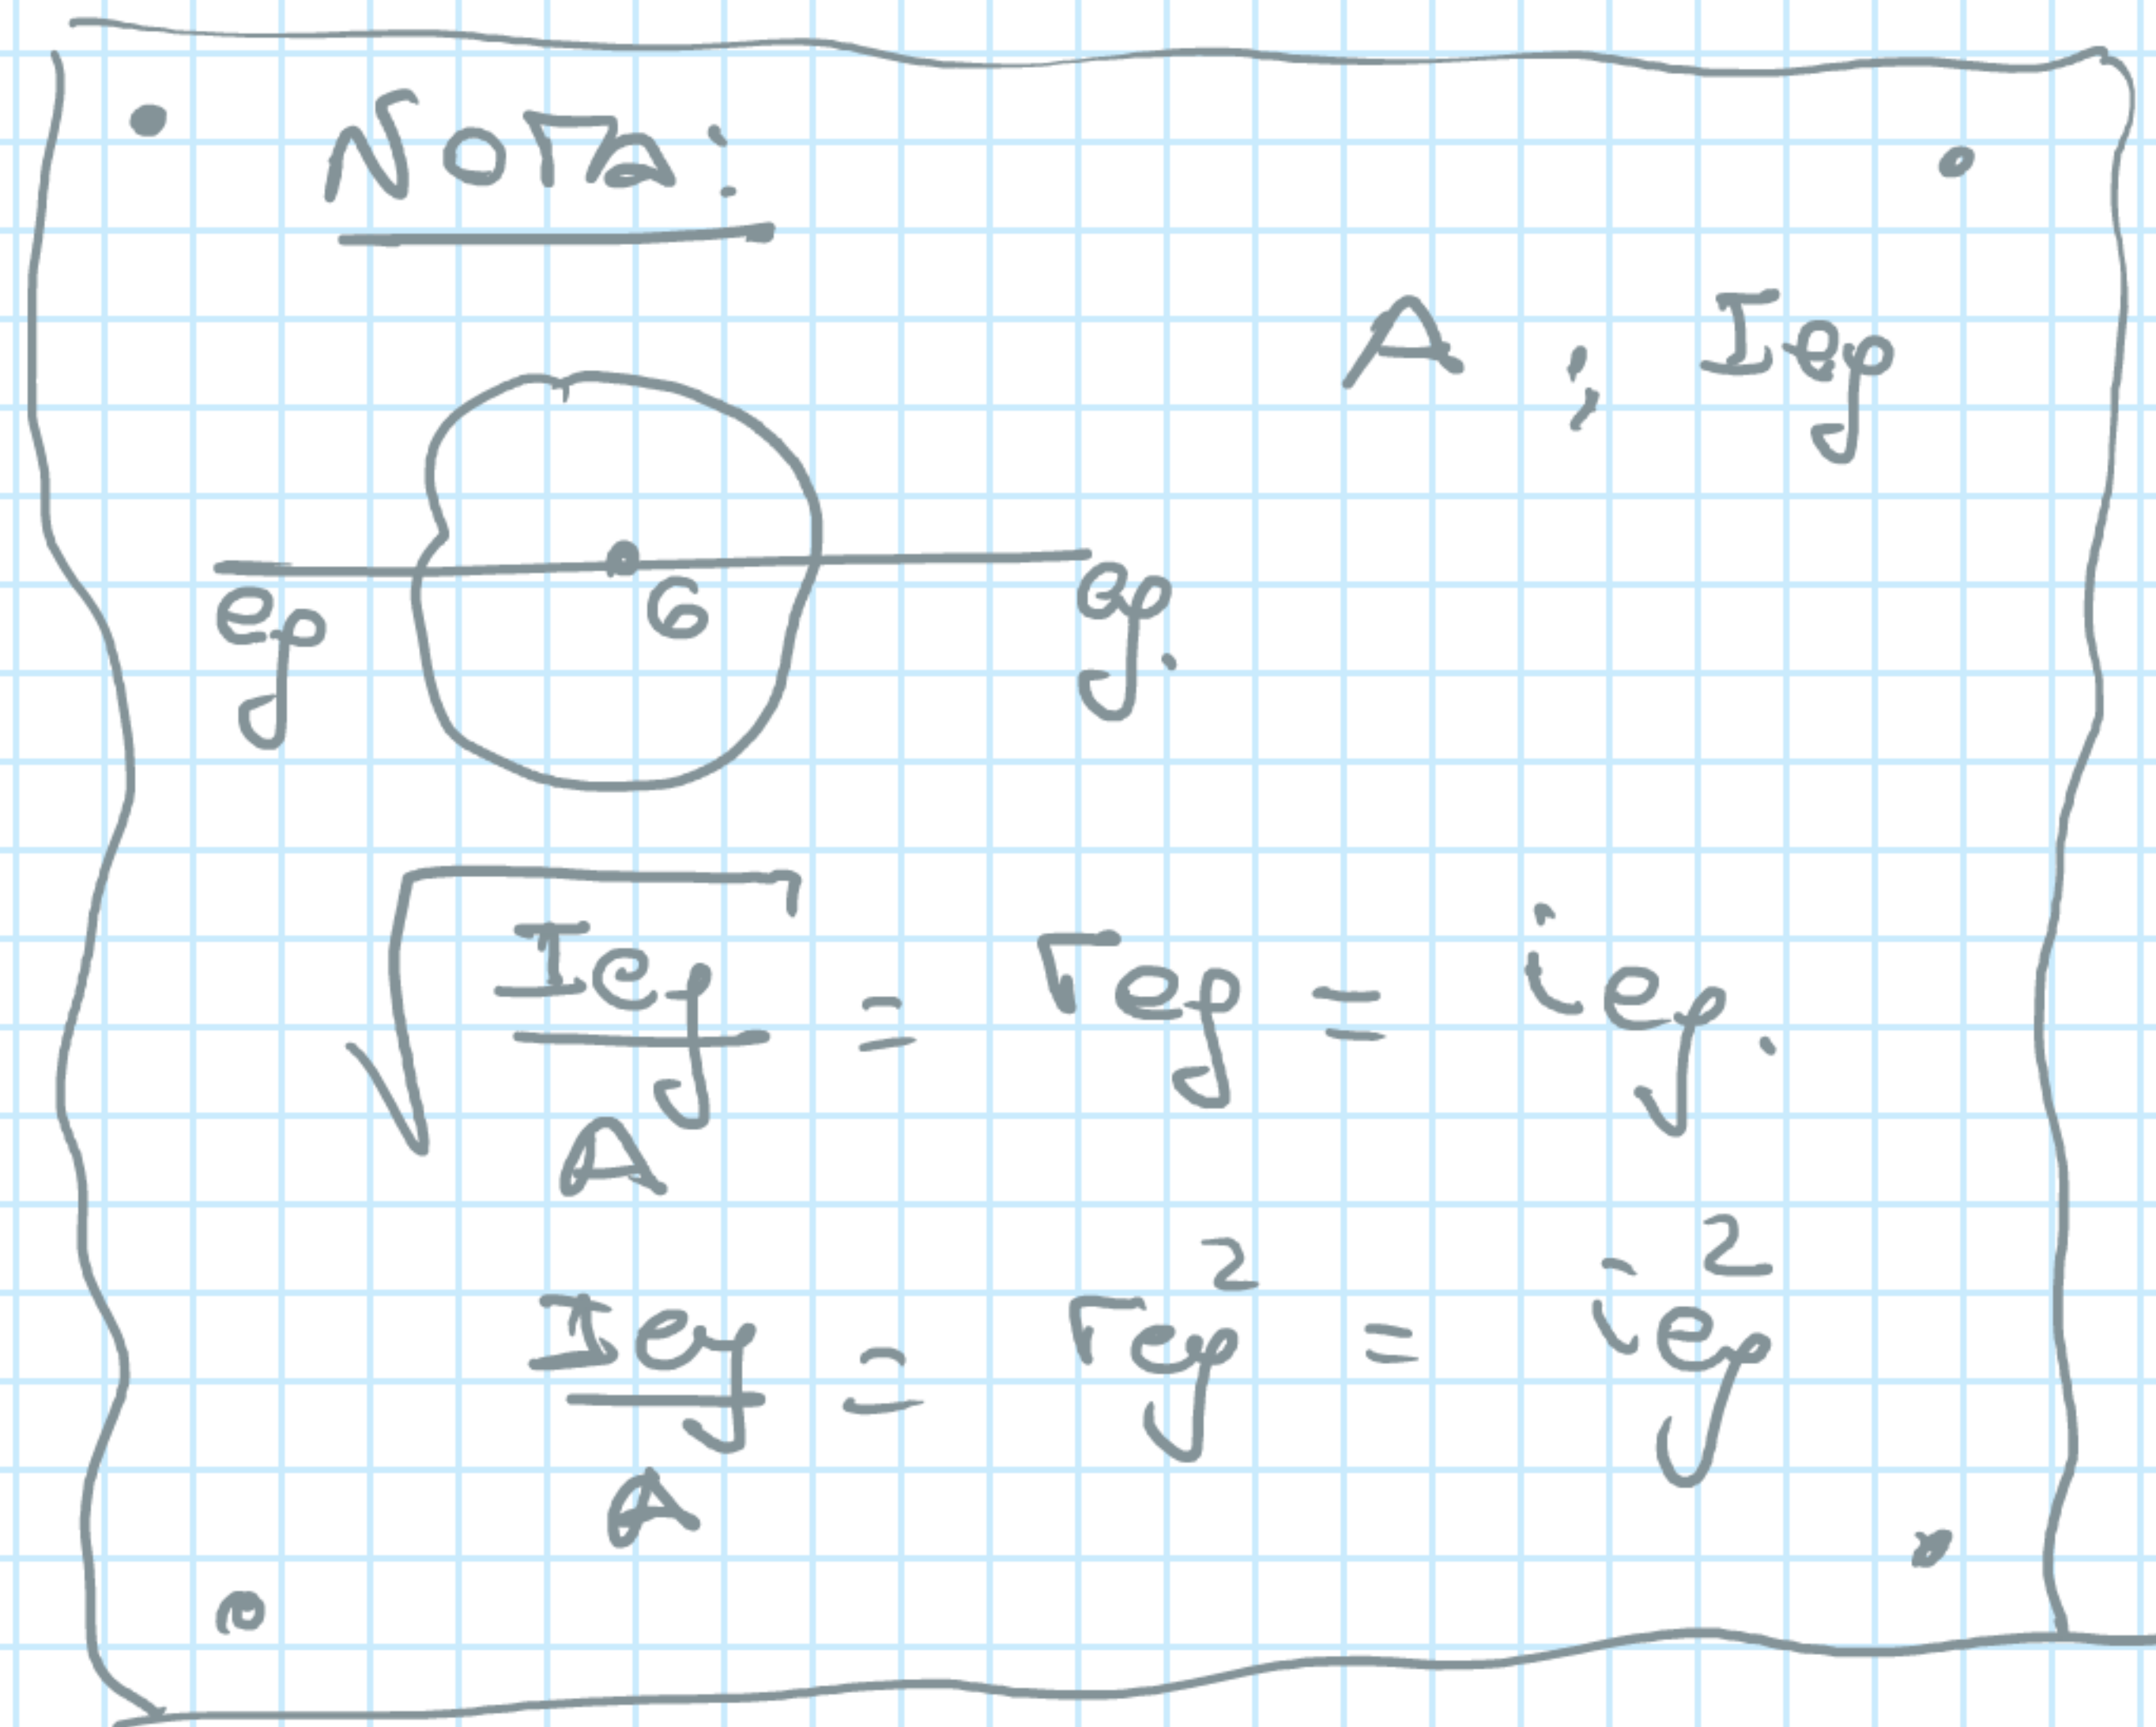 Nota:
A ; Ieg
G
eg eg.
√(Ieg/A) = reg = ieg.
Ieg/A = reg² = ieg²